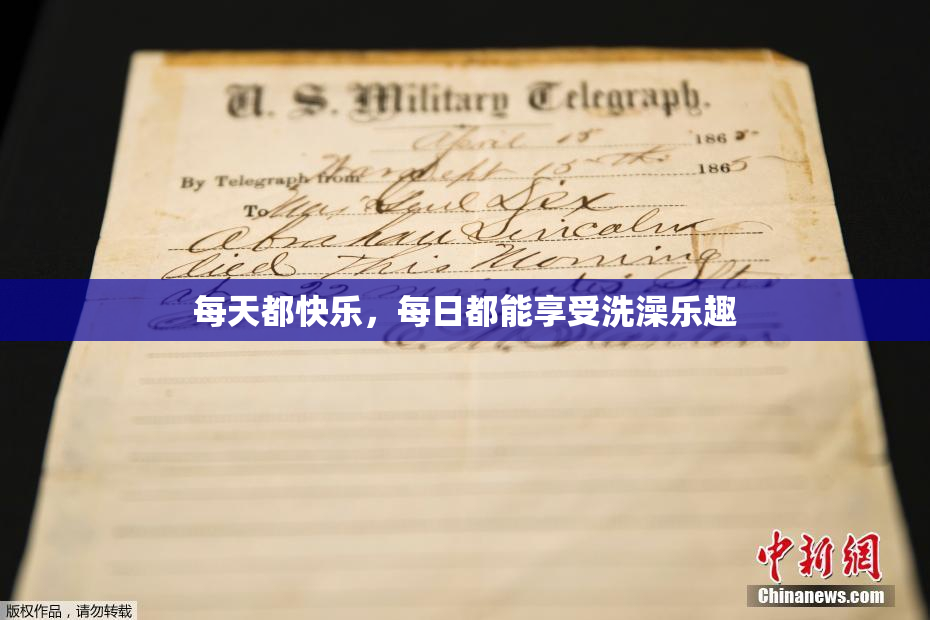 U. S. Military Telegraph.
April 15 1865
By Telegraph from War Dept 15th 1865
To Maj Genl Dix
Abraham Lincoln
died This Morning
at 22 minutes after
每天都快乐，每日都能享受洗澡乐趣
中新網
Chinanews.com
版权作品，请勿转载